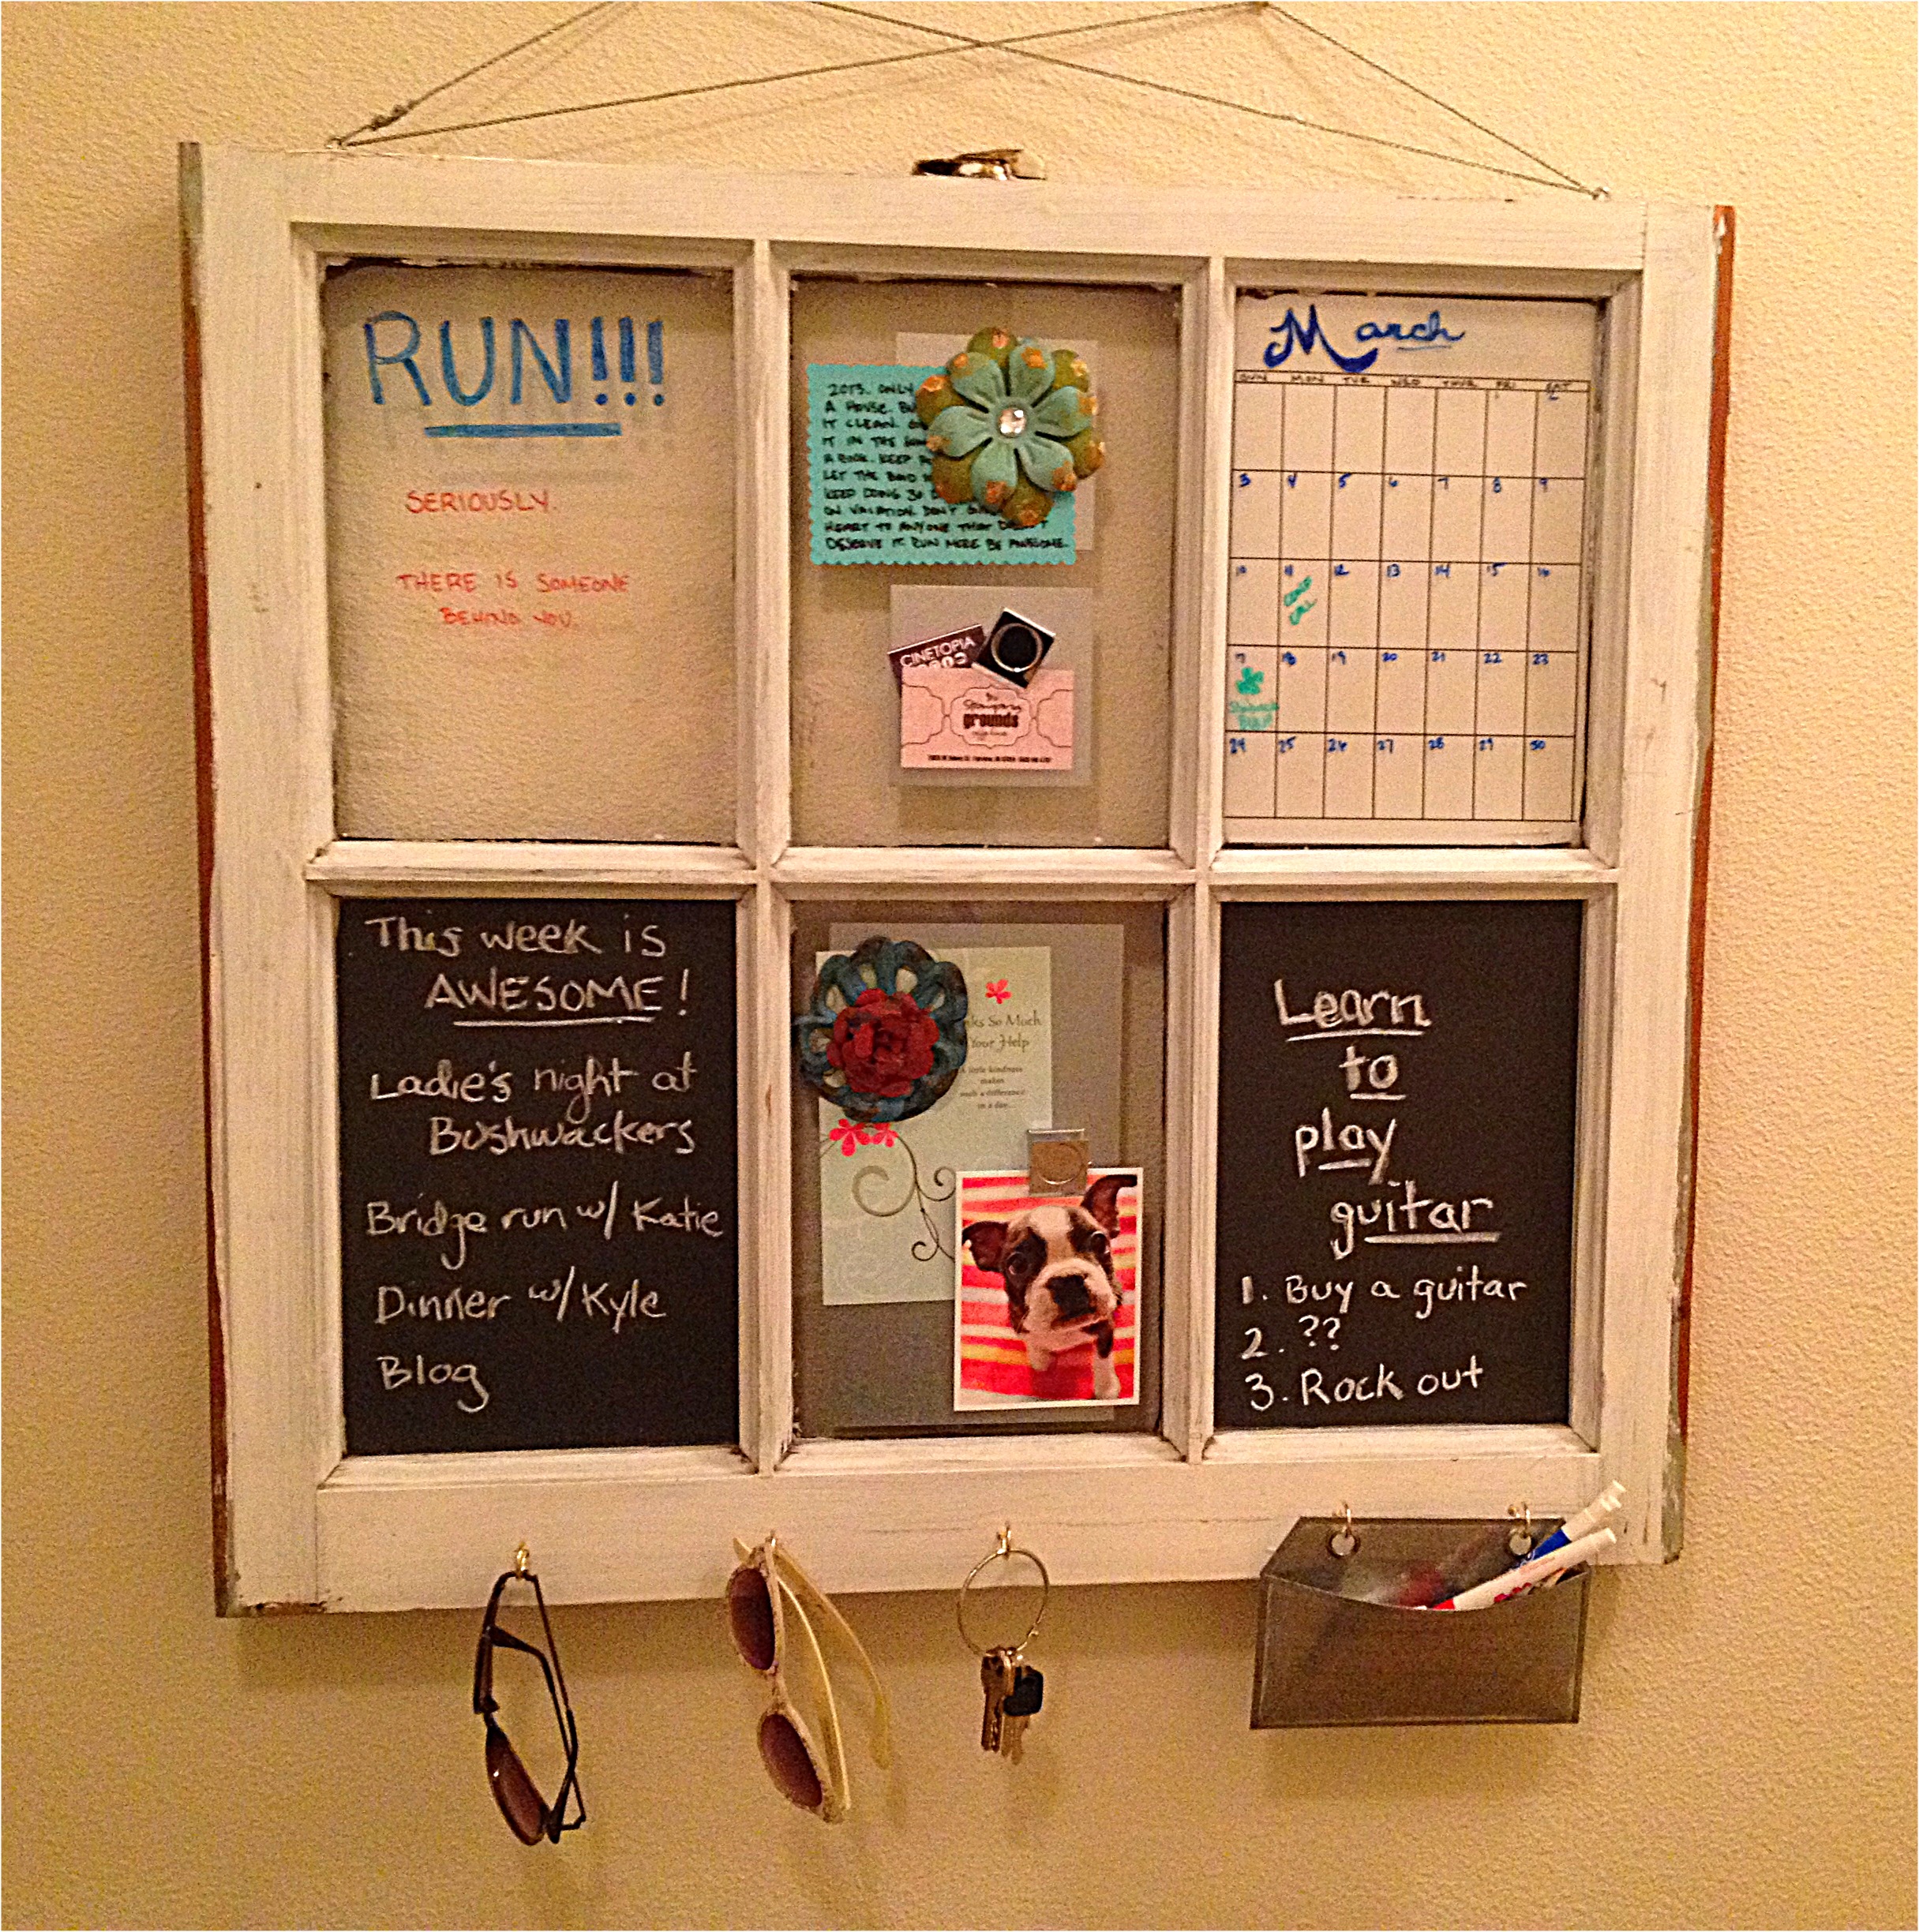 RUN!!!
SERIOUSLY.
THERE IS SOMEONE
BEHIND YOU.
2013. ONLY
A HOUSE. BU
IT CLEAN.
IT IN THE
A BOOK. KEEP
LET THE
KEEP DOING 30
ON VACATION. DON'T
HEART TO ANYONE THAT
DESERVE IT RUN MORE BE AWESOME.
CINETOPIA
Stomping
grounds
March
SUN MON TUE WED THUR FRI SAT
2
3 4 5 6 7 8 9
10 11 12 13 14 15 16
CALL
17 18 19 20 21 22 23
24 25 26 27 28 29 30
This week is
AWESOME!
Ladie's night at
Bushwackers
Bridge run w/ Katie
Dinner w/ Kyle
Blog
nks So Much
Your Help
A little kindness
makes
such a difference
in a day.
Learn
to
play
guitar
1. Buy a guitar
2. ??
3. Rock out